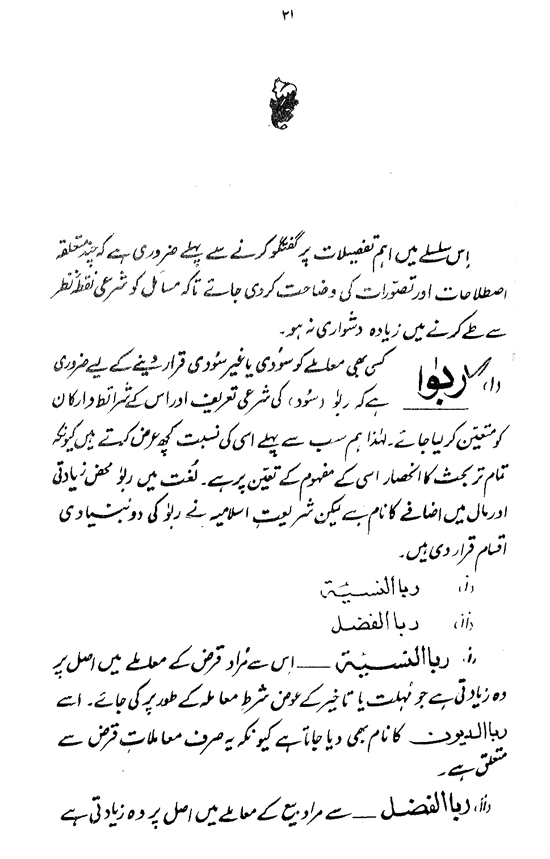 ۲۱
اِس سلسلے میں اہم تفصیلات پر گفتگو کرنے سے پہلے ضروری ہے کہ چند متعلقہ
اصطلاحات اور تصوّرات کی وضاحت کردی جائے تاکہ مسائل کو شرعی نقطۂ نظر
سے طے کرنے میں زیادہ دشواری نہ ہو۔
(ا) ربٰوا کسی بھی معاملے کو سوُدی یا غیر سوُدی قرار دینے کے لیے ضروری
ہے کہ ربٰو (سوُد) کی شرعی تعریف اور اس کے شرائط و ارکان
کو متعیّن کر لیا جائے۔ لہٰذا ہم سب سے پہلے اسی کی نسبت کچھ عرض کرتے ہیں کیونکہ
تمام تر بحث کا انحصار اسی کے مفہوم کے تعیّن پر ہے۔ لُغت میں ربٰو محض زیادتی
اور مال میں اضافے کا نام ہے لیکن شریعتِ اسلامیہ نے ربٰو کی دو بُنیادی
اقسام قرار دی ہیں۔
(i) ربا النسیئۃ
(ii) ربا الفضل
i. ربا النسیئۃ ــــ اِس سے مُراد قرض کے معاملے میں اصل پر
وہ زیادتی ہے جو مُہلت یا تاخیر کے عوض شرطِ معاملہ کے طور پر کی جائے۔ اسے
ربا الدیون کا نام بھی دیا جاتا ہے کیونکہ یہ صرف معاملاتِ قرض سے
متعلق ہے۔
ii. ربا الفضل ــــ سے مراد بیع کے معاملے میں اصل پر وہ زیادتی ہے